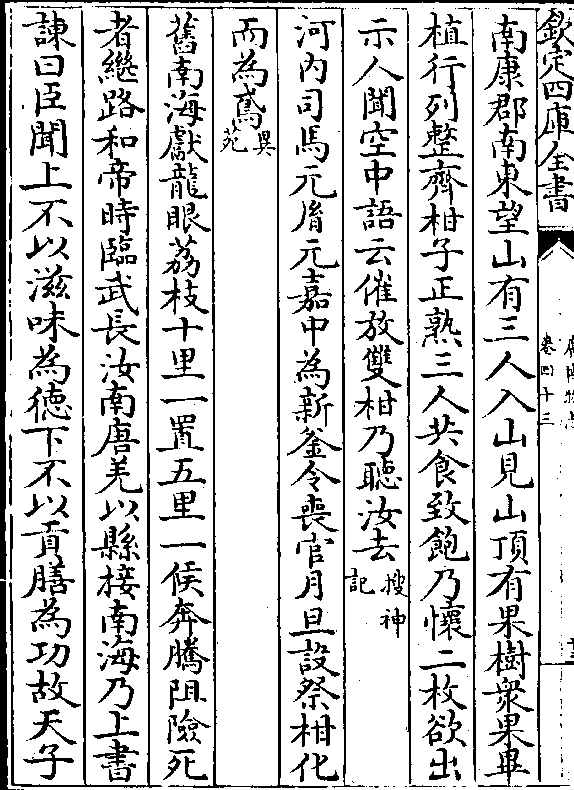 欽定四庫全書
卷四十三
南康郡南東望山有三人入山見山頂有果樹衆果畢
植行列整齊柑子正熟三人共食致飽乃懷二枚欲出
示人聞空中語云催放雙柑乃聽汝去搜神記
河内司馬元胤元嘉中為新釜令喪官月旦設祭柑化
而為鳶異苑
舊南海獻龍眼荔枝十里一置五里一候奔騰阻險死
者繼路和帝時臨武長汝南唐羌以縣接南海乃上書
諫曰臣聞上不以滋味為徳下不以貢膳為功故天子